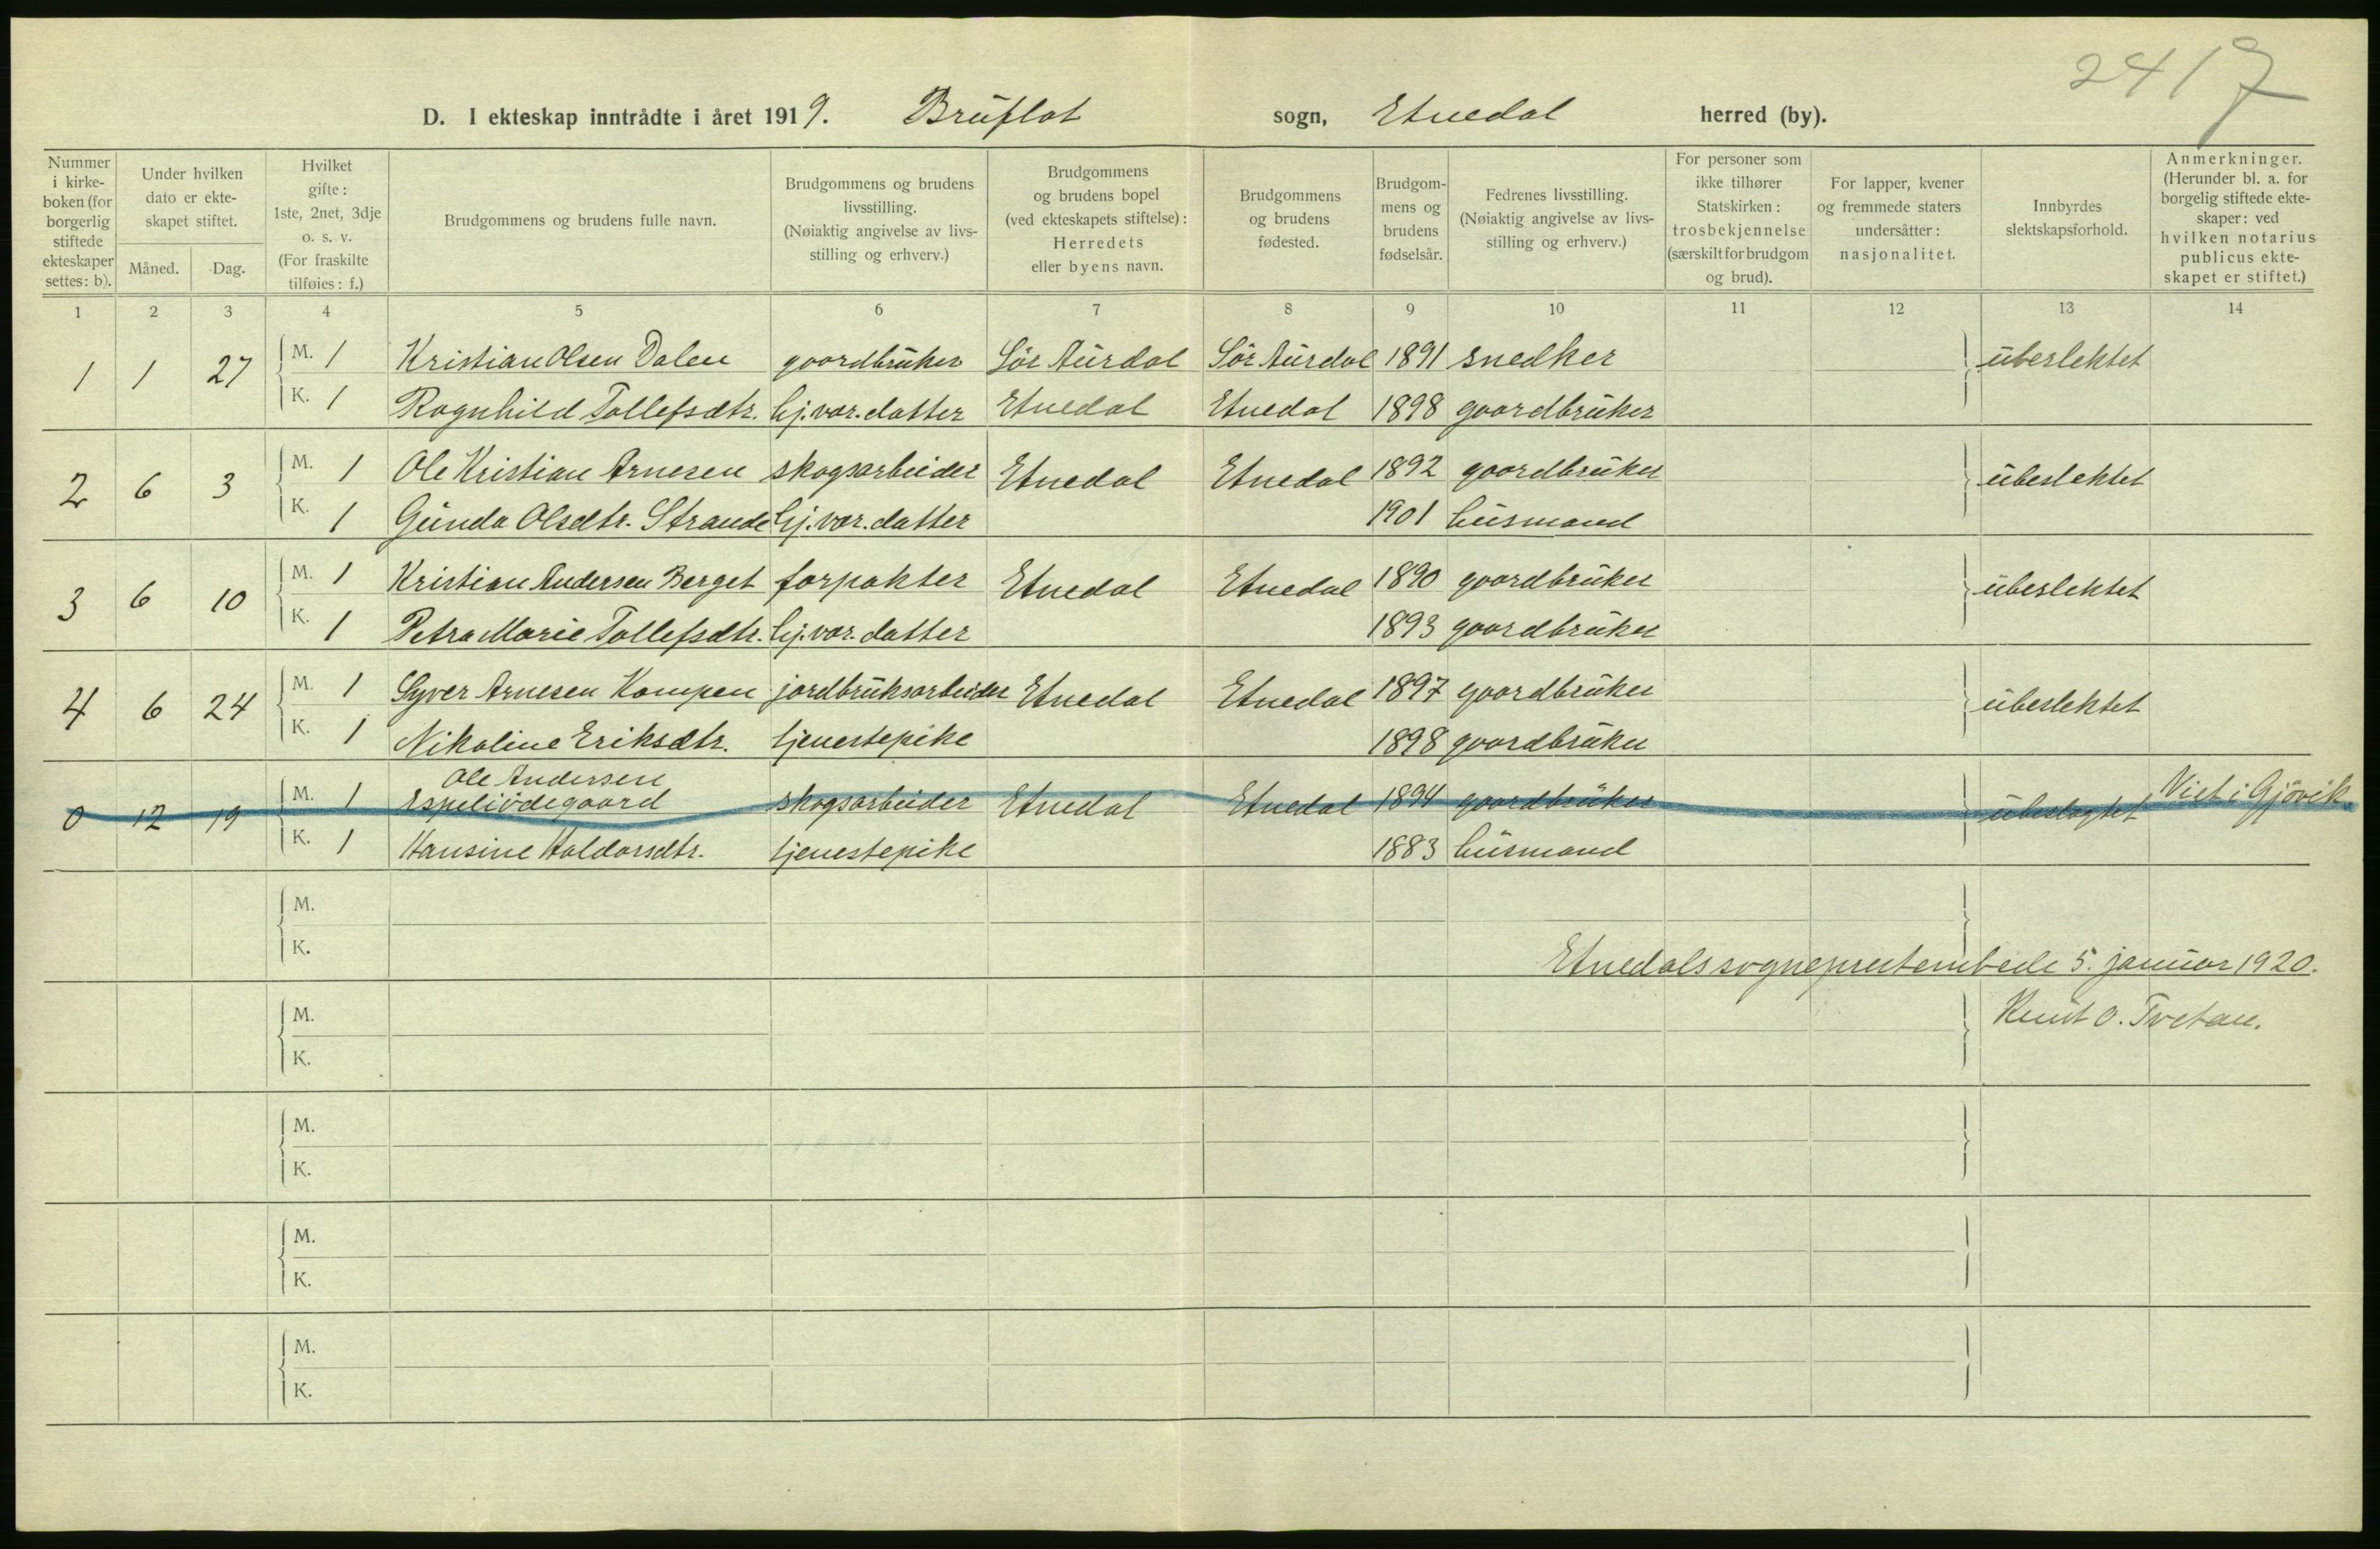 2417
D. I ekteskap inntrådte i året 1919. Bruflat sogn, Etnedal herred (by).
Nummer i kirke-boken (for borgerlig stiftede ekteskaper settes: b).
Under hvilken dato er ekte-skapet stiftet.
Måned. Dag.
Hvilket gifte: 1ste, 2net, 3dje o. s. v. (For fraskilte tilføies: f.)
Brudgommens og brudens fulle navn.
Brudgommens og brudens livsstilling. (Nøiaktig angivelse av livs-stilling og erhverv.)
Brudgommens og brudens bopel (ved ekteskapets stiftelse): Herredets eller byens navn.
Brudgommens og brudens fødested.
Brudgom-mens og brudens fødselsår.
Fedrenes livsstilling. (Nøiaktig angivelse av livs-stilling og erhverv.)
For personer som ikke tilhører Statskirken: trosbekjennelse (særskilt for brudgom og brud).
For lapper, kvener og fremmede staters undersåtter: nasjonalitet.
Innbyrdes slektskapsforhold.
Anmerkninger. (Herunder bl. a. for borgelig stiftede ekte-skaper: ved hvilken notarius publicus ekte-skapet er stiftet.)
1 2 3 4 5 6 7 8 9 10 11 12 13 14
1 1 27 M. 1 Kristian Olsen Dalen gaardbruker Sör Aurdal Sör Aurdal 1891 snedker ubeslektet
K. 1 Ragnhild Tollefsdtr. hj.vær.datter Etnedal Etnedal 1898 gaardbruker
2 6 3 M. 1 Ole Kristian Arnesen skogsarbeider Etnedal Etnedal 1892 gaardbruker ubeslektet
K. 1 Gunda Olsdtr. Strande hj.vær.datter 1901 husmand
3 6 10 M. 1 Kristian Andersen Berget forpakter Etnedal Etnedal 1890 gaardbruker ubeslektet
K. 1 Petra Marie Tollefsdtr. hj.vær.datter 1893 gaardbruker
4 6 24 M. 1 Syver Arnesen Kampen jordbruksarbeider Etnedal Etnedal 1897 gaardbruker ubeslektet
K. 1 Nikoline Eriksdtr. tjenestepike 1898 gaardbruker
Ole Andersen
0 12 19 M. 1 Espeliödegaard skogsarbeider Etnedal Etnedal 1894 gaardbruker ubeslegtet Viet i Gjövik.
K. 1 Hansine Haldorsdtr. tjenestepike 1883 husmand
M.
K.
Etnedals sogneprestembede 5. januar 1920.
Knut O. Tvetan.
M.
K.
M.
K.
M.
K.
M.
K.